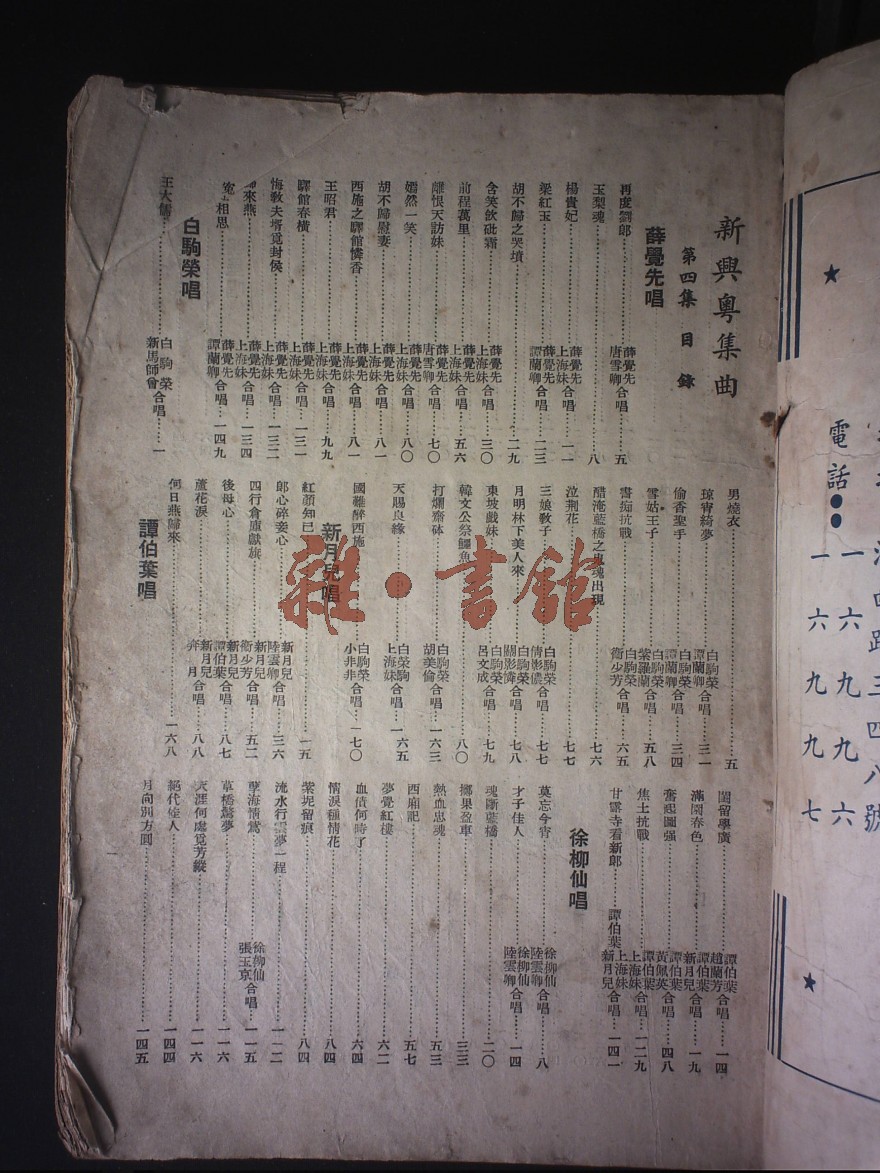 新興粵集曲
第四集 目錄
薛覺先唱
再度劉郎……薛覺先 唐雪卿 合唱……五
玉梨魂……八
楊貴妃……薛覺先 上海妹 合唱……一一
梁紅玉……薛覺先 譚蘭卿 合唱……二三
胡不歸之哭墳……二九
含笑飲砒霜……薛覺先 上海妹 合唱……三〇
前程萬里……薛覺先 上海妹 合唱……五六
離恨天訪妹……薛覺先 唐雪卿 合唱……七〇
嫣然一笑……薛覺先 上海妹 合唱……八〇
胡不歸慰妻……薛覺先 上海妹 合唱……八一
西施之驛館憐香……薛覺先 上海妹 合唱……八一
王昭君……薛覺先 上海妹 合唱……九九
驛館春橫……薛覺先 上海妹 合唱……一三一
悔教夫壻覓封侯……薛覺先 上海妹 合唱……一三二
來燕……薛覺先 上海妹 合唱……一三四
相思……薛覺先 譚蘭卿 合唱……一四九
白駒榮唱
王大儒……白駒榮 新馬師曾 合唱……一
男燒衣……五
琼宵綺夢……白駒榮 譚蘭卿 合唱……三一
偷香聖手……白駒榮 譚蘭卿 合唱……三四
雪姑王子……白駒榮 紫羅蘭 合唱……五八
書痴抗戰……白駒榮 衛少芳 合唱……六五
醋淹藍橋之 魂出現……七六
泣荆花……七七
三娘教子……白駒榮 倩影儂 合唱……七七
月明林下美人來……白駒榮 關影憐 合唱……七八
東坡戲妹……白駒榮 呂文成 合唱……七九
韓文公祭鱷魚……八〇
打爛齋砵……白駒榮 胡美倫 合唱……一六三
天賜良緣……白榮駒 上海妹 合唱……一六五
國難醉西施……白駒榮 小非非 合唱……一七〇
新月兒唱
紅顏知已……一五
郎心碎妾心……新月兒 陸雲卿 合唱……三六
四行倉庫獻旗……新月兒 衛少芳 合唱……五二
後母心……新月兒 譚伯葉 合唱……八七
蘆花淚……新月兒 月 合唱……八八
何日燕歸來……一六八
譚伯葉唱
閨留學廣……譚伯葉 趙蘭芳 合唱……一四
滿園春色……譚伯葉 新月兒 合唱……一九
奮起圖强……譚伯葉 黃佩英 合唱……四八
焦土抗戰……譚伯葉 上海妹 合唱……一二九
甘露寺看新郎……譚伯葉 上海妹 新月兒 合唱……一四一
徐柳仙唱
莫忘今宵……徐柳仙 陸雲卿 合唱……八
才子佳人……徐柳仙 陸雲卿 合唱……一四
魂斷藍橋……二〇
擲果盈車……三三
熱血忠魂……五三
西廂記……五七
夢覺紅樓……六二
血債何時了……六四
情淚種情花……八四
紫坭留痕……八四
流水行雲夢一程……一一二
孽海情鴛……徐柳仙 張玉京 合唱……一一五
草橋驚夢……一一六
天涯何處覓芳蹤……一一六
絕代佳人……一四四
月向別方圓……一四五
雜·書館
四路三四八號
電話：一六九九六
一六九九七